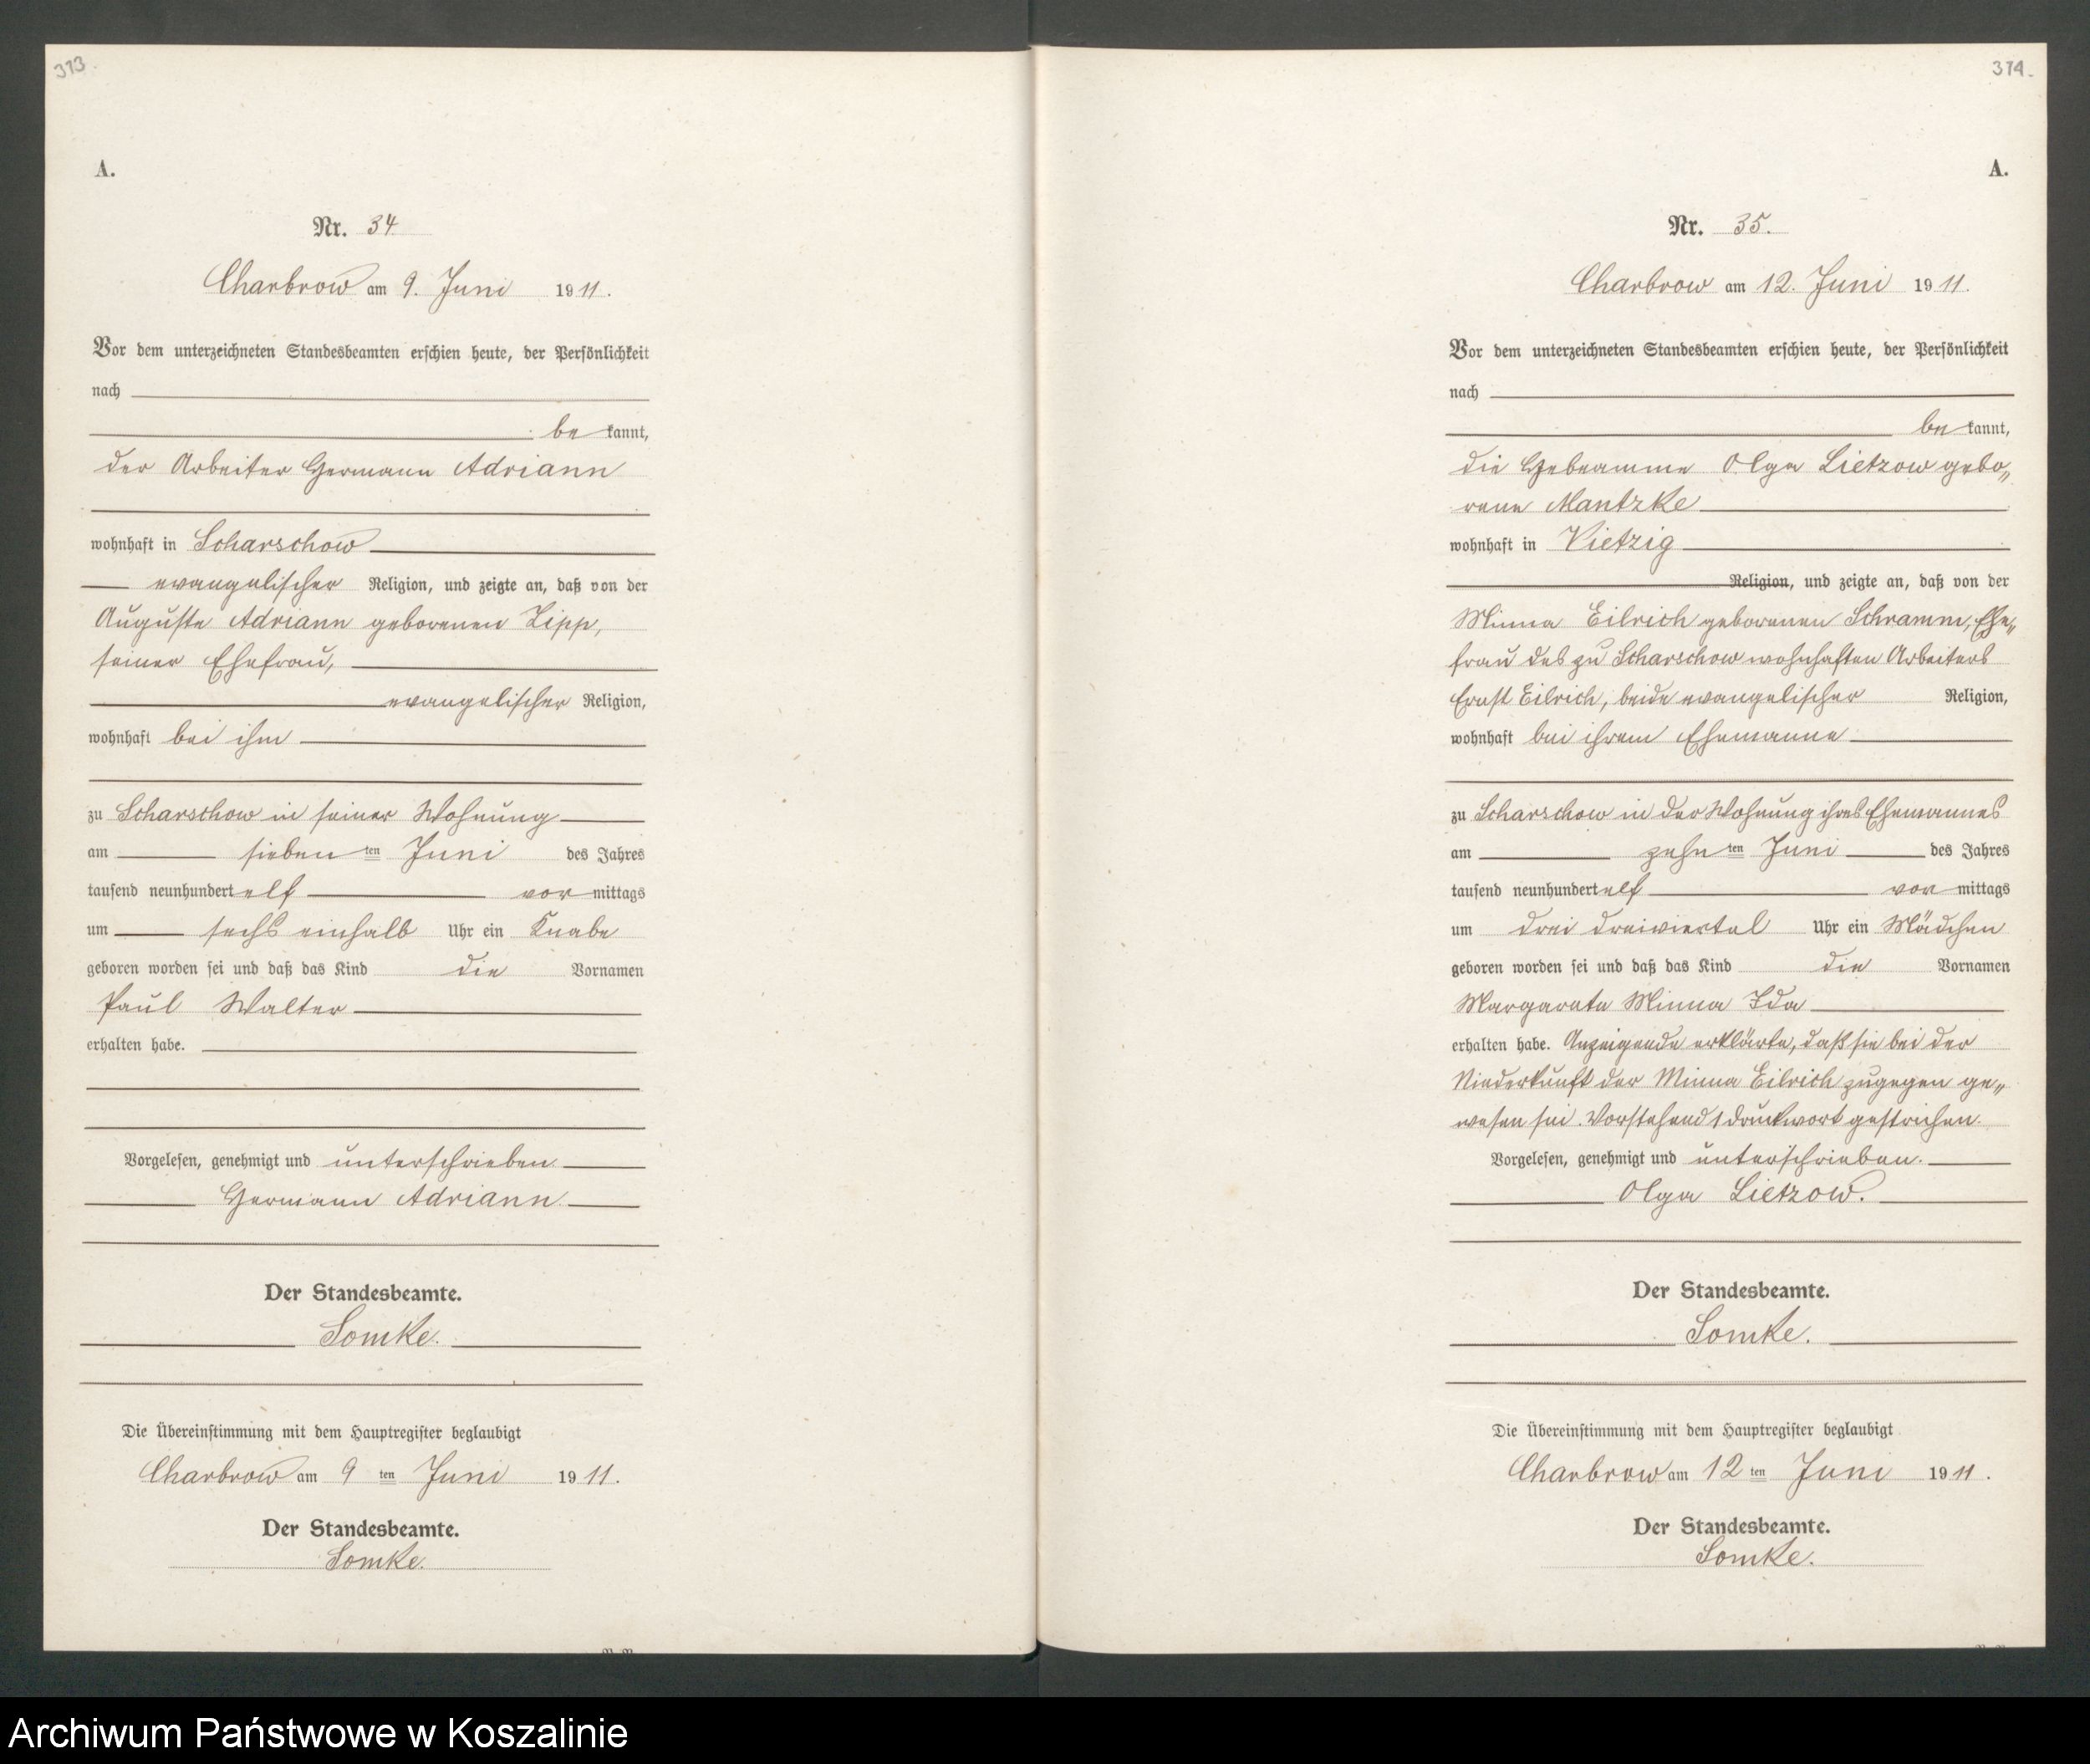 373.
A.
Nr. 34
Charbrow am 9. Juni 1911.
Vor dem unterzeichneten Standesbeamten erschien heute, der Persönlichkeit
nach
bekannt,
der Arbeiter Hermann Adriann
wohnhaft in Scharschow
evangelischer Religion, und zeigte an, daß von der
Auguste Adriann geborenen Zipp,
seiner Ehefrau,
evangelischer Religion,
wohnhaft bei ihm
zu Scharschow in seiner Wohnung
am siebenten Juni des Jahres
tausend neunhundert elf vormittags
um sechs einhalb Uhr ein Knabe
geboren worden sei und daß das Kind die Vornamen
Paul Walter
erhalten habe.
Vorgelesen, genehmigt und unterschrieben.
Hermann Adriann
Der Standesbeamte.
Somke.
Die Übereinstimmung mit dem Hauptregister beglaubigt
Charbrow am 9ten Juni 1911.
Der Standesbeamte.
Somke.
374.
A.
Nr. 35.
Charbrow am 12. Juni 1911.
Vor dem unterzeichneten Standesbeamten erschien heute, der Persönlichkeit
nach
bekannt,
die Hebeamme Olga Lietzow gebo„
rene Mantzke
wohnhaft in Vietzig
Religion, und zeigte an, daß von der
Minna Eilrich geborenen Schramm, Ehe„
frau des zu Scharschow wohnhaften Arbeiters
Ernst Eilrich, beide evangelischer Religion,
wohnhaft bei ihrem Ehemanne
zu Scharschow in der Wohnung ihres Ehemannes
am zehnten Juni des Jahres
tausend neunhundert elf vormittags
um drei dreiviertel Uhr ein Mädchen
geboren worden sei und daß das Kind die Vornamen
Margarete Minna Ida
erhalten habe. Anzeigende erklärte, daß sie bei der
Niederkunft der Minna Eilrich zugegen ge„
wesen sei. Vorstehend 1 Druckwort gestrichen.
Vorgelesen, genehmigt und unterschrieben.
Olga Lietzow.
Der Standesbeamte.
Somke.
Die Übereinstimmung mit dem Hauptregister beglaubigt
Charbrow am 12ten Juni 1911.
Der Standesbeamte.
Somke.
Archiwum Państwowe w Koszalinie